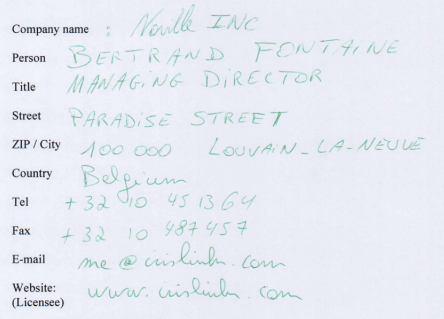 Company name : Neville INC
Person BERTRAND FONTAINE
Title MANAGING DIRECTOR
Street PARADISE STREET
ZIP / City 100 000 LOUVAIN-LA-NEUVE
Country Belgium
Tel +32 10 45 13 64
Fax +32 10 487457
E-mail me@irislink.com
Website: www.irislink.com
(Licensee)